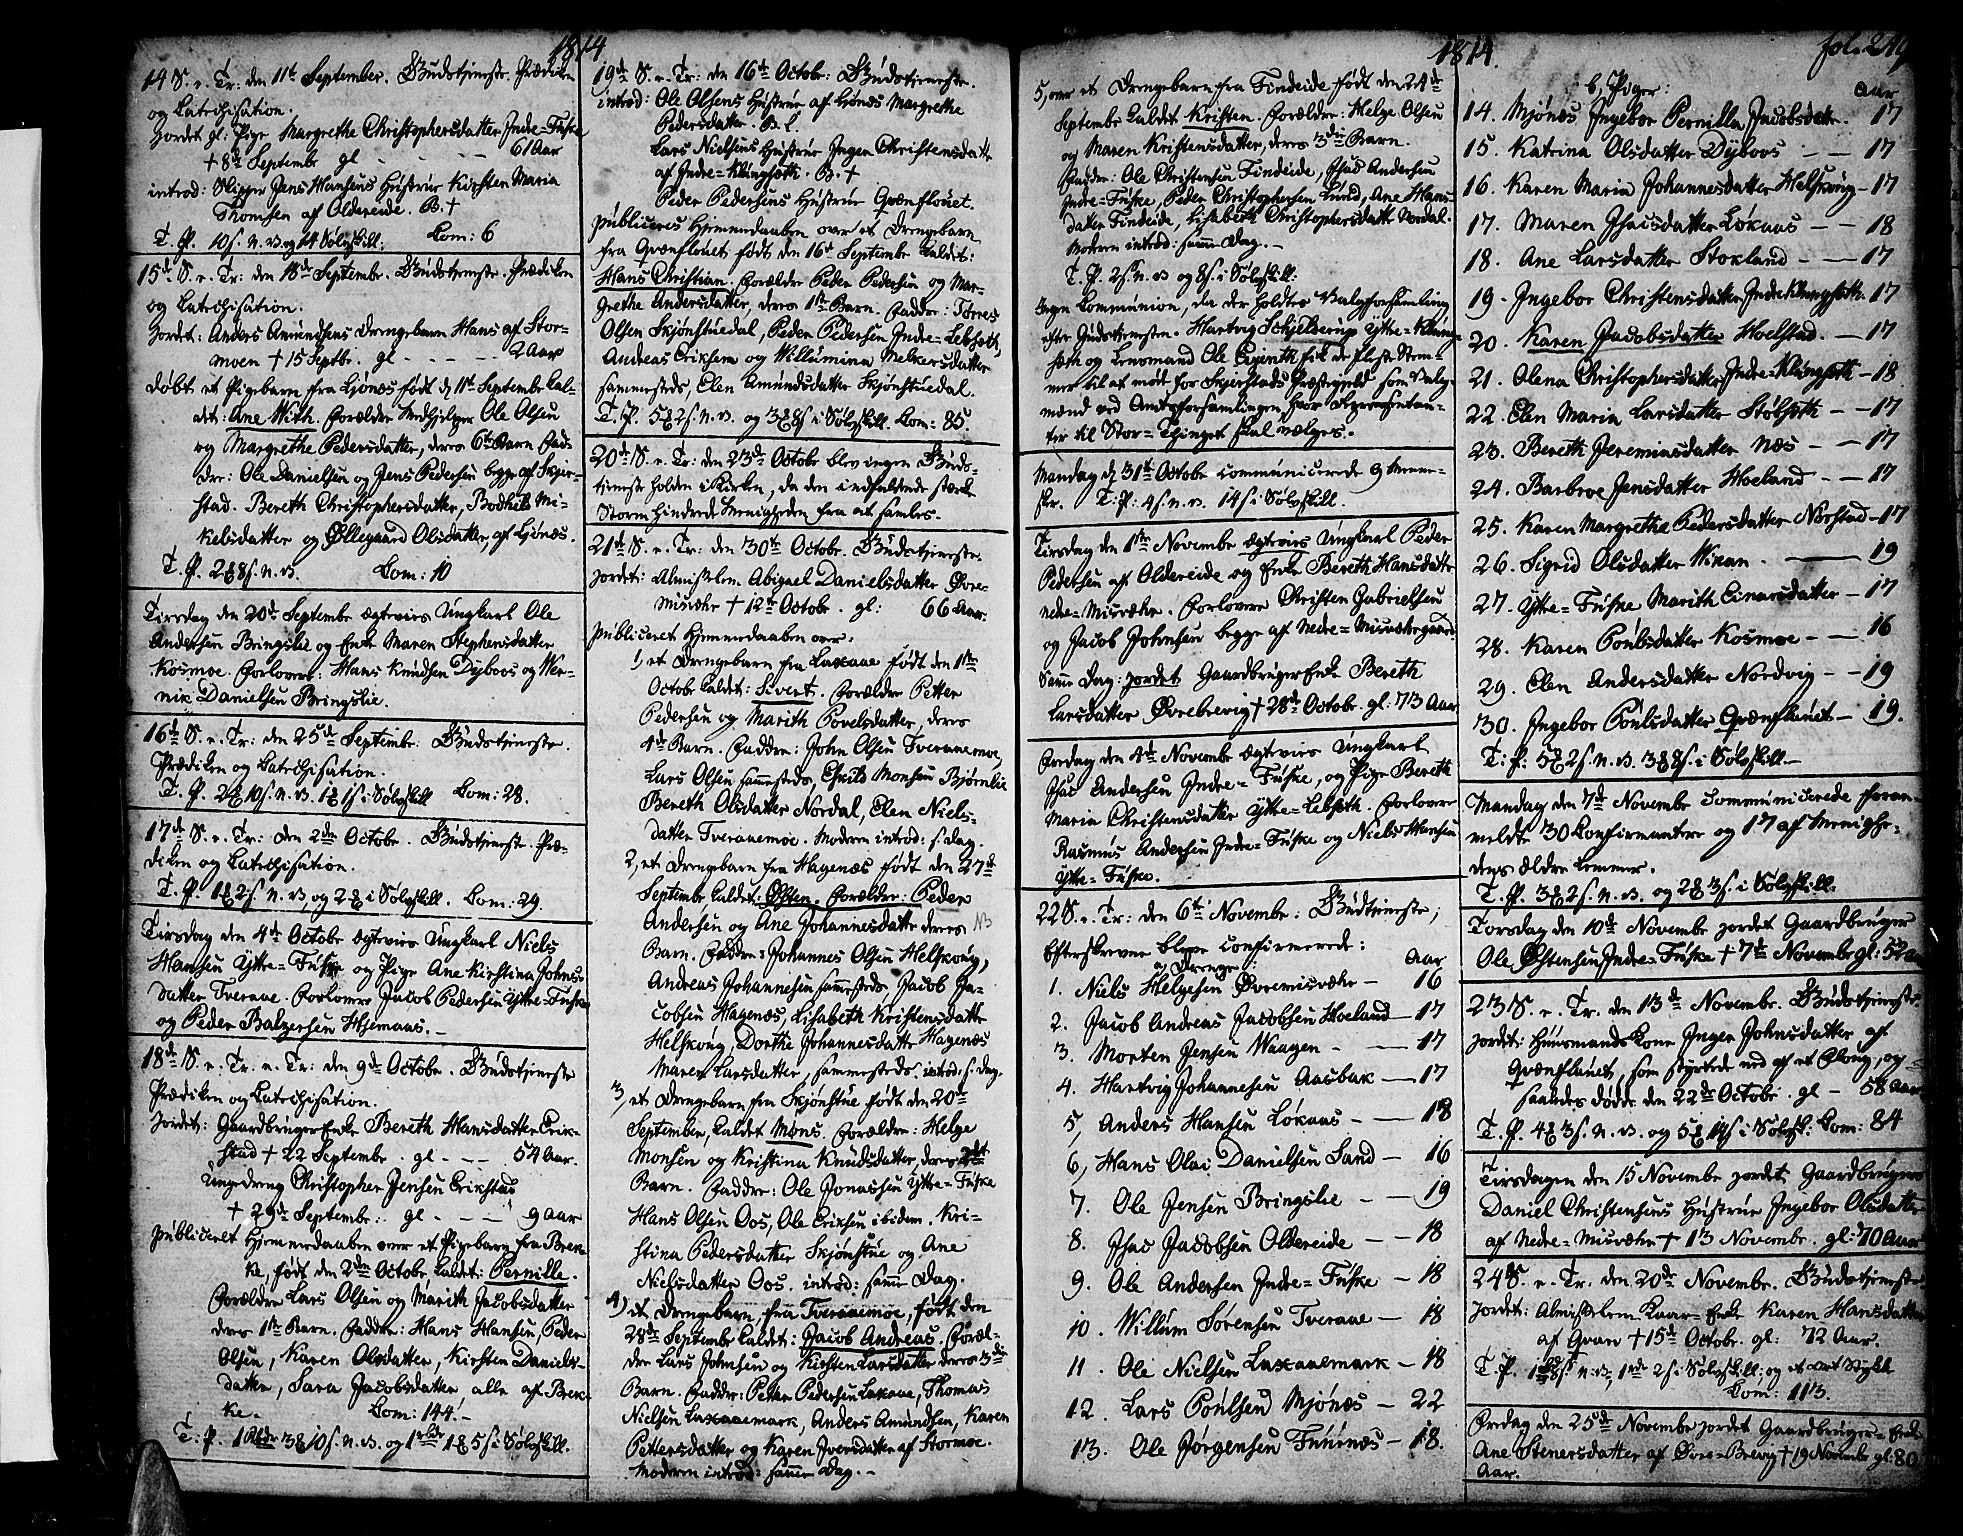 1814
14 S. e. Tr. den 11te September. Gudstjeneste. Prædiken
og Catechisation.
Jordet gl. Pige Margrethe Christophersdatter Indre=Fuske
+ 8de Septembr gl - - - - 61 Aar
introd: Skipper Jens Hansens Hustrue Kirsten Maria
Thomsen af Oldereide. B. +
T. P. 10 s. n. v. og 14 Sølvskill. Com: 6
15de S. e. Tr: den 18de Septembr. Gudstjeneste. Prædiken
og Catechisation.
Jordet: Anders Amundsens Drengebarn Hans af Stor-
moen + 15 Septbr. gl - - - - 2 Aar
Døbt et Pigebarn fra Ljønæs født d 11te Septembr Cal-
det: Ane With. Forældre Medhjelper Ole Olsen
og Margrethe Pedersdatter, deres 6te Barn Fad-
der: Ole Danielsen og Jens Pedersen begge af Skjer-
stad. Bereth Christophersdatter, Bodhild Mi-
kelsdatter og Øllegaard Olsdatter, af Ljønæs.
T. P. 2 8 s. n. v. Com: 10
Tirsdag den 20de Septembr ægtvies Ungkarl Ole
Andersen Bringslie og Enke Maren Stephensdatter
Kosmoe. Forlovere: Hans Knudsen Dyboos og Wer-
nik Danielsen Bringslie.
16de S. e. Tr: den 25de Septembr: Gudstjeneste.
Prædiken og Catechisation.
T. P. 2 10 s. n. v. 1 1 s. i Sølvskill Com: 28.
17de S. e. Tr: den 2den Octobr. Gudstjeneste. Præ-
diken og Catechisation.
T. P. 1 2 s. n. v. og 2 i Sølvskill. Com: 29.
Tirsdag den 4de Octobr ægtvies Ungkarl Niels
Hansen Ytre=Fuske og Pige Ane Kirstina Johns-
datter Tveraae. Forlovere Jacob Pedersen Ytre=Fuske
og Peder Balzersen Hjemaas.-
18de S. e. Tr. e. Tr: den 9de Octobr. Gudstjeneste
Prædiken og Catechisation.
Jordet: Gaardbruger Enke Bereth Hansdatter Erik-
stad + 22 Septembr. gl - - - 54 Aar.
Unge dreng Christopher Jensen Erikstad
+ 29de Septembr: gl - - - 9 Aar
publiceret Hjemmedaaben over et Pigebarn fra Brek-
ke, født den 2den Octobr. Caldet: Pernille.
Forældre Lars Olsen og Marith Jacobsdatter
deres 1ste Barn. Faddre: Hans Hansen, Peder
Olsen, Karen Olsdatter, Kirsten Daniels-
datter, Sara Jacobsdatter alle af Brek-
ke. Com: 144.-
T. P. 1 Rbdr 3 10 s. n. v. og 1 rbdr 1 5 s. i Sølvskill.
19de S. e. Tr: den 16de Octobr: Gudstjeneste.
introd: Ole Olsens Hustrue af Ljønæs Margrethe
Pedersdatter. B. L.
Lars Nielsens Hustrue Inger Christensdatter
af Indre=Klungsæth. B. +
Peder Pedersens Hustrue Qvænflouet.
publiceres Hjemmedaaben over et Drengebarn
fra Qvænflouet født den 16de Septembr Caldet:
Hans Christian. Forældre Peder Pedersen og Mar-
grethe Andersdatter, deres 1ste Barn. Faddre: Torres
Olsen Skjønstuedal, Peder Pedersen Indre=Lebsæth,
Andreas Eriksen og Willumina Melkersdatter
sammesteds, Elen Amundsdatter Skjønstuedal.
T. P. 5 2 s. n. v. og 3 8 s. i Sølvskill. Com: 85.
20de S. e. Tr: den 23de Octobr blev ingen Guds-
tjeneste holden i Kirken, da den indfaldende stærke
Storm hindrede Menigheden fra at samles.-
21de S. e. Tr: den 30te Octobr. Gudstjeneste
Jordet: Almisselem Abigael Danielsdatter Øvre-
Misvær + 12te Octobr. gl: 66 Aar.
publiceret Hjemmedaaben over:
1, et Drengebarn fra Luxaae født den 1ste
Octobr Caldet: Sivert. Forældre Petter
Pedersen og Marith Povelsdatter, deres
1ste Barn. Faddre: John Olsen Tveraaemoe,
Lars Olsen sammesteds, Eskild Monsen Bjørnlie
Bereth Olsdatter Nordal, Elen Niels-
datter Tveraaemoe. Moderen introd: s. dag.
2, et Drengebarn fra Hagenæs født den 27de
Septembr, Caldet: Østen. Forældre: Peder
Andersen og Ane Johannesdatter deres NB
Barn. Faddre: Johannes Olsen Helskoug,
Andreas Johannesen sammesteds Jacob Ja-
cobsen Hagenæs, Lisabeth Kristensdatter
Helskoug, Dorthe Johannesdatter Hagenæs
Maren Larsdatter, sammesteds. introd: s. dag.
3, et Drengebarn fra Skjønstue født den 20de
September, Caldet Mons. Forældre: Helge
Monsen og Kristina Knudsdatter, deres 2det
Barn. Faddre: Ole Jonassen Ytre=Fuske
Hans Olsen Oos, Ole Eriksen ibidem. Kri-
stina Pedersdatter Skjønstue og Ane
Nielsdatter Oos. introd: samme Dag.
4) et Drengebarn, fra Tveraaemoe, født den
28de Septembr Caldet: Jacob Andreas. Foræl-
dre Lars Johnsen og Kirsten Larsdatter deres 3die
Barn. Faddre: Peder Pedersen Luxaae, Thomas
Nielsen Luxaaemark, Anders Amundsen, Karen
Pettersdatter og Karen Iversdatter af Stormoe.
Moderen introd: samme dag.-
1814.
5, over et Drengebarn fra Findeide født den 24de
Septembr Caldet Kristen. Forældre: Helge Olsen
og Maren Kristensdatter, deres 3die Barn.
Faddre: Ole Christensen Findeide, Isac Andersen
Indre=Fuske, Peder Christophersen Lund, Ane Hans-
datter Findeide, Lisabeth Christophersdatter Nordal.
Moderen introd: samme Dag.-
T. P. 2 s. n. v. og 8 s. i Sølvskill.
Ingen Communion, da der holdtes Valgforsamling
efter Gudstjenesten. Hartvig Schjelderup Ytre=Klung-
sæth og Lensmand Ole fik de fleste Stem-
mer til at møde for Skjerstads Præstegield som Valg-
mænd ved Amtsforsamlingen, hvor Repræsentan-
ter til Stor=Thinget skal vælges.
Mandag d 31te Octobr communicerede 9 Menne-
sker. T. P: 4 s. n. v. 14 s. i Sølvskill.
Tirsdag den 1ste Novembr ægtvies Ungkarl Peder
Pedersen af Oldereide og Enke Bereth Hansdatter
Nedre=Misvær. Forlovere Christen Gabrielsen
og Jacob Johnsen begge af Nedre=Misværgaard.
Samme Dag: jordet Gaardbruger Enke Bereth
Larsdatter Øvrebrevig + 28de Octobr. gl: 73 Aar
Fredag den 4de Novembr ægtvies Ungkarl
Isac Andersen Indre=Fuske, og Pige Bereth
Maria Christensdatter Ytre=Lebsæth. Forlovere
Rasmus Andersen Indre=Fuske og Niels Hansen
Ytre=Fuske.
22 S. e. Tr: den 6te Novembr: Gudstjeneste;
Efterskrevne bleve confirmerede:
a, Drenge Aar
1. Niels Helgesen Øvremisvær - 16
2. Jacob Andreas Jacobsen Hoeland - 17
3. Morten Jensen Waagen - - 17
4. Hartvig Johannesen Aasbak - 17
5, Anders Hansen Løkaas - - 18
6, Hans Olai Danielsen Sand - 16
7. Ole Jensen Bringslie - - 19
8. Isac Jacobsen Oldereide - - 18
9. Ole Andersen Indre=Fuske - 18
10. Willum Sørensen Tveraae - 18
11. Ole Nielsen Luxaaemark - 18
12. Lars Poulsen Mjønæs - 22
13. Ole Jørgensen Fuunæs - 18.
fol. 249
b, Piger: Aar
14. Mjønæs Ingebor Pernilla Jacobsdatr. 17
15. Katrina Olsdatter Dyboos - - 17
16. Karen Maria Johannesdatter Helskoug - 17
17. Maren Isacsdatter Løkaas - - 18
18. Ane Larsdatter Stokland - - 17
19. Ingebor Christensdatter Indre Klungsæth. 17
20. Karen Jacobsdatter Hoelstad. - 17
21. Olena Christophersdatter Indre=Klungsæth - 18
22. Elen Maria Larsdatter Støbsæth - - 17
23. Bereth Jeremiasdatter Næs - - 17
24. Barbroe Jensdatter Hoeland - - 17
25. Karen Margrethe Pedersdatter Norstad - 17
26. Sigrid Olsdatter Wikan. - 19
27. Ytre=Fuske Marith Einarsdatter - 17
28. Karen Poulsdatter Kosmoe - - 16
29. Elen Andersdatter Nordvig - - 19
30. Ingebor Poulsdatter Qvænflouet - 19.
T. P: 5 2 s. n. v. 3 8 s. i Sølvskill.-
Mandag den 7de Novembr Communicerede foran-
meldte 30 Confirmantere og 17 af Menighe-
dens ældre Lemmer.
T. P. 3 2 s. n. v. og 2 3 s. i Sølvskill.
Torsdag den 10de Novembr jordet Gaardbruger
Ole Østensen Indre=Fuske + 7de Novembr gl: 52 Aar
23 S. e. Tr. den 13de Novembr. Gudstjeneste.
Jordet: Huusmands Kone Inger Johnsdatter af
Qvænflouet, som styrtede ned af et , og
saaledes døde den 22de Octobr. gl - 58 Aar
T. P. 4 3 s. n. v. og 5 14 s. i Sølvsk. Com: 84
Tirsdagen den 15 Novembr jordet Gaardbruger
Daniel Christensens Hustrue Ingebor Olsdatter
af Nedre=Misvær + 13 Novembr. gl: 70 Aar
24 S. e. Tr. den 20de Novembr. Gudstjeneste
Jordet: Almisselem Enke Karen Hansdatter
af Qvarn + 15de Octobr. gl: 72 Aar.
T. P. 1 8 s. n. v., 1 2 s. i Sølvskill; og et ort Stykke
Com: 113.
Fredag den 25de Novembr jordet Gaardbruger=Enke
Ane Stenersdatter af Øvre=Brevig + 19 Novembr gl: 80
Aar.